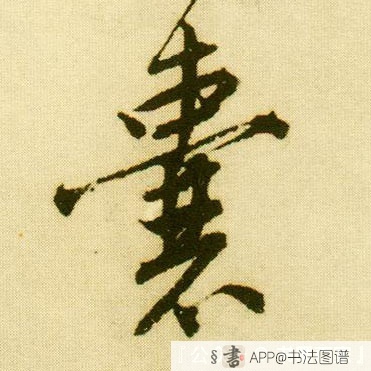 囊
§書 APP@书法图谱